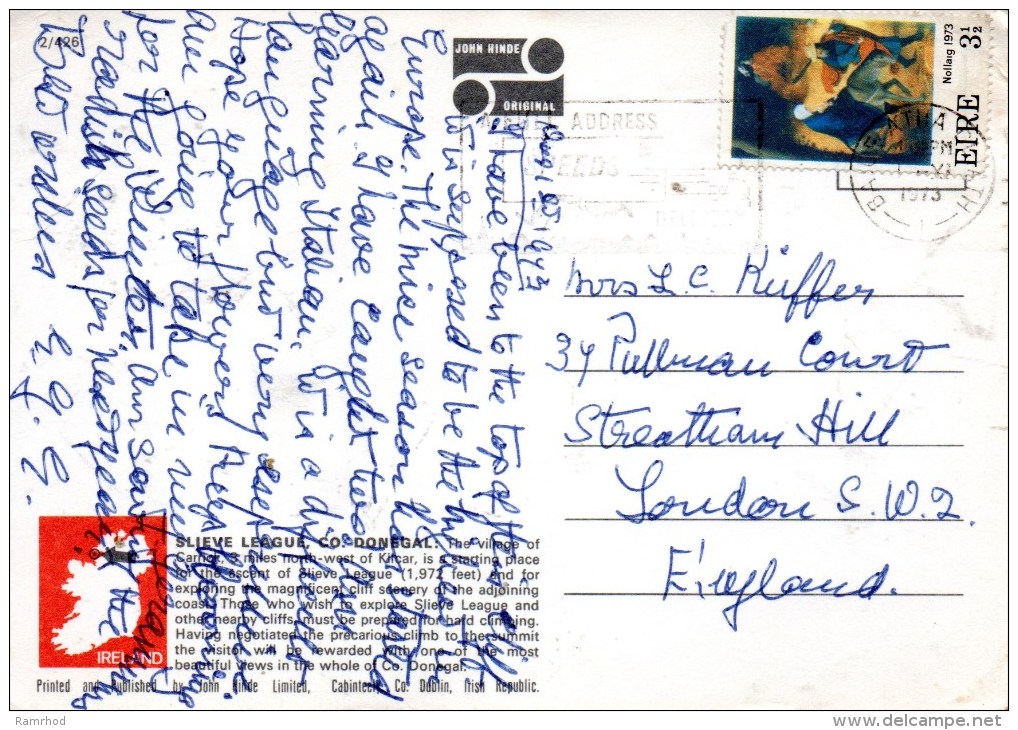 2/426
JOHN HINDE
ORIGINAL
Nollaig 1973
EIRE 3½
ADDRESS
1973
1973
I have been to the top of this cliff
it is supposed to be the highest in
Europe. The mice season has started
again. I have caught two. Am
learning Italian. It is a difficult
language but very useful.
Hope your flowers keep blooming
Am going to take in my geraniums
for the Winter. Am saving the
radish seeds for next year.
Best wishes
E. G.
Mrs L. C. Küffer
34 Pullman Court
Streatham Hill
London S.W.2.
England.
SLIEVE LEAGUE, CO. DONEGAL: The village of
Carrick, 3 miles north-west of Kilcar, is a starting place
for the ascent of Slieve League (1,972 feet) and for
exploring the magnificent cliff scenery of the adjoining
coast. Those who wish to explore Slieve League and
other nearby cliffs, must be prepared for hard climbing.
Having negotiated the precarious climb to the summit
the visitor will be rewarded with one of the most
beautiful views in the whole of Co. Donegal.
IRELAND
Printed and Published by John Hinde Limited, Cabinteely, Co. Dublin, Irish Republic.
Ramrhod
delcampe.net